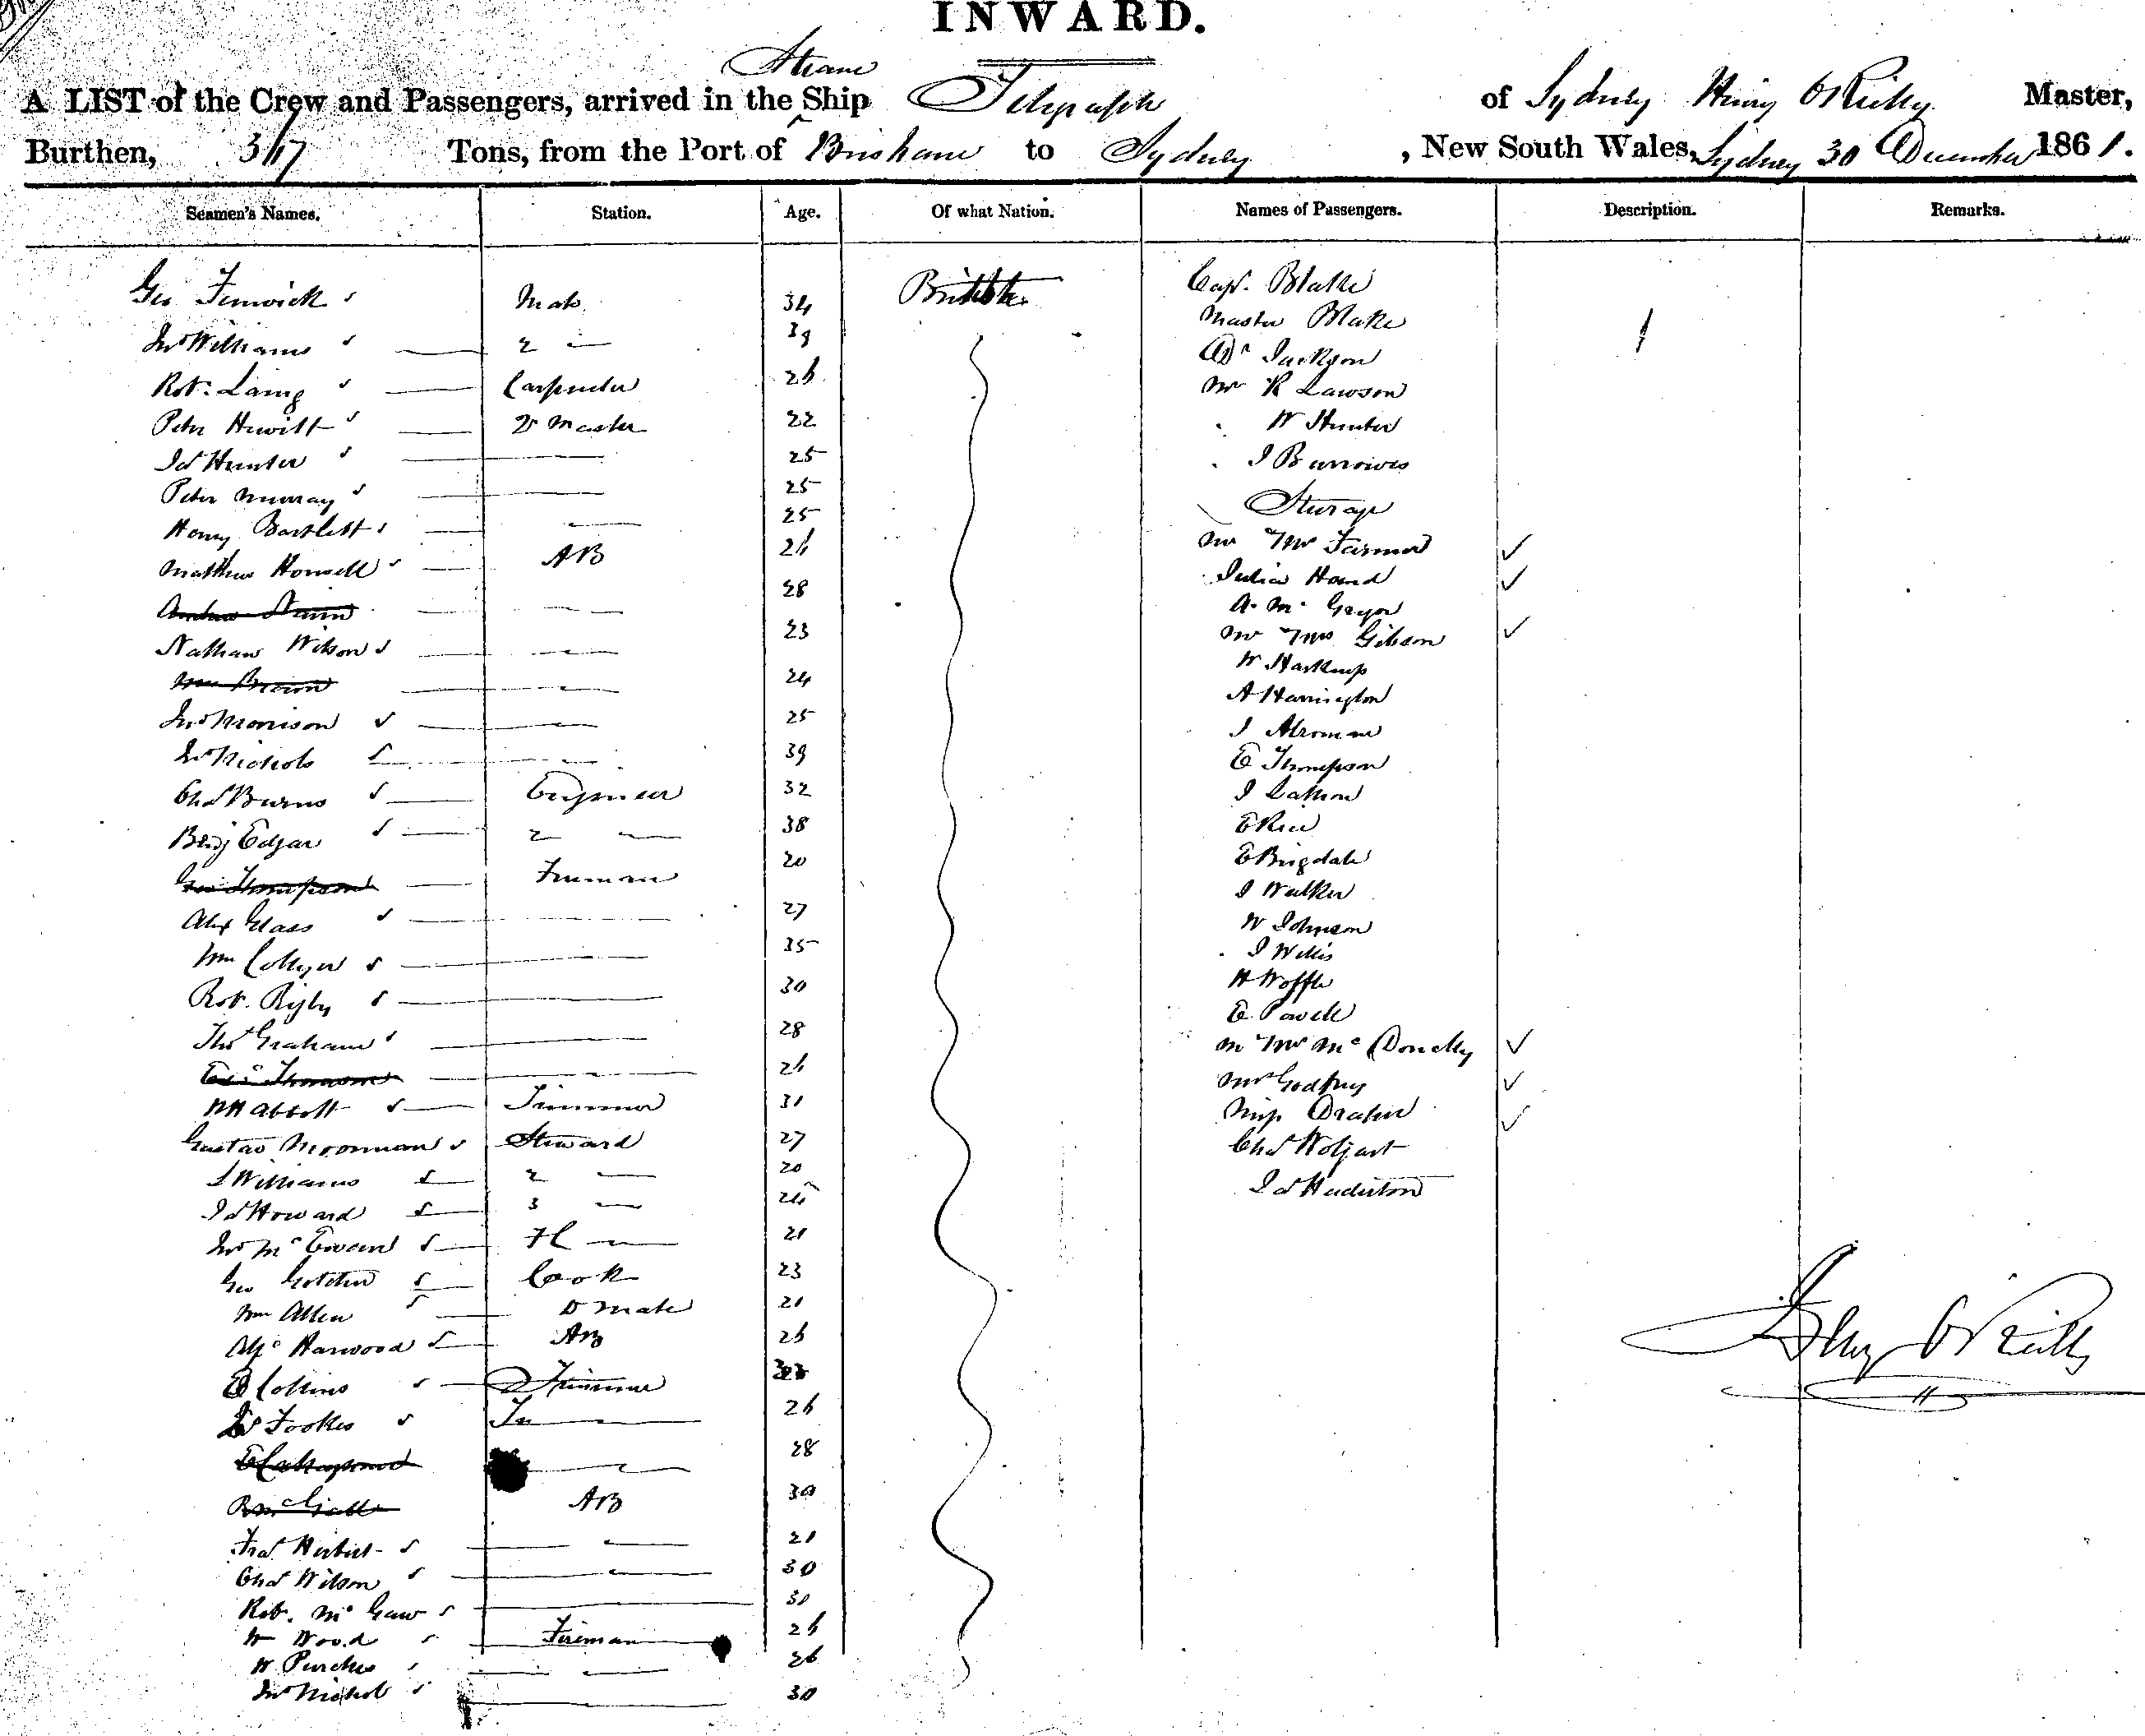 INWARD.
Steam
A LIST of the Crew and Passengers, arrived in the Ship Telegraph of Sydney Henry O'Reilly Master,
Burthen, 367 Tons, from the Port of Brisbane to Sydney, New South Wales, Sydney 30 December 1861.
Seamen's Names. Station. Age. Of what Nation. Names of Passengers. Description. Remarks.
Geo Fenwick Mate 34 British Capt. Blake
Jno Williams 2 — 39 Master Blake
Dr Jackson
Robt. Laing Carpenter 26 Mr R Lawson
Peter Hewitt 2d Master 22 W Hunter
Jas Hunter 25 J Burrowes
Peter Murray 25 Steerage
Henry Bartlett 25
Matthew Honsell AB 26 Mr & Mrs Farmer
28 Julia Hand
A. Mc Gregor
Nathan Wilson 23 Mr & Mrs Gibson
W Hartkup
Wm Brown 24 A Harrington
Jno Morrison 25 J
Jno Nichols 39 E Thompson
Chas Burns Engineer 32 J
Benj Edgar 2 — 38 E Rice
Geo Thompson Fireman 20 E Brigdale
J Walker
Alex Glass 27 W Johnson
Wm Collyer 35 J Willis
Robt. Rigby 30 H
E. Powell
Thos Graham 28 Mr & Mrs Mc Donelly
26 Mrs Godfrey
W H Abbott Trimmer 31 Miss Draper
Gustav Moorman Steward 27 Chas
S Williams 2 — 20
Jas Howard 3 — 24 Jas
Jno Mc Ewan 21
Geo Cook 23
Wm Allen Do Mate 21
Harwood AB 26 Henry O'Reilly
E Collins Trimmer
Fookes 26
28
AB 30
Fras Herbert 21
Chas Wilson 30
Robt. Mc Gaw 30
W Wood Fireman 26
W Purches 26
Jno Nichol 30